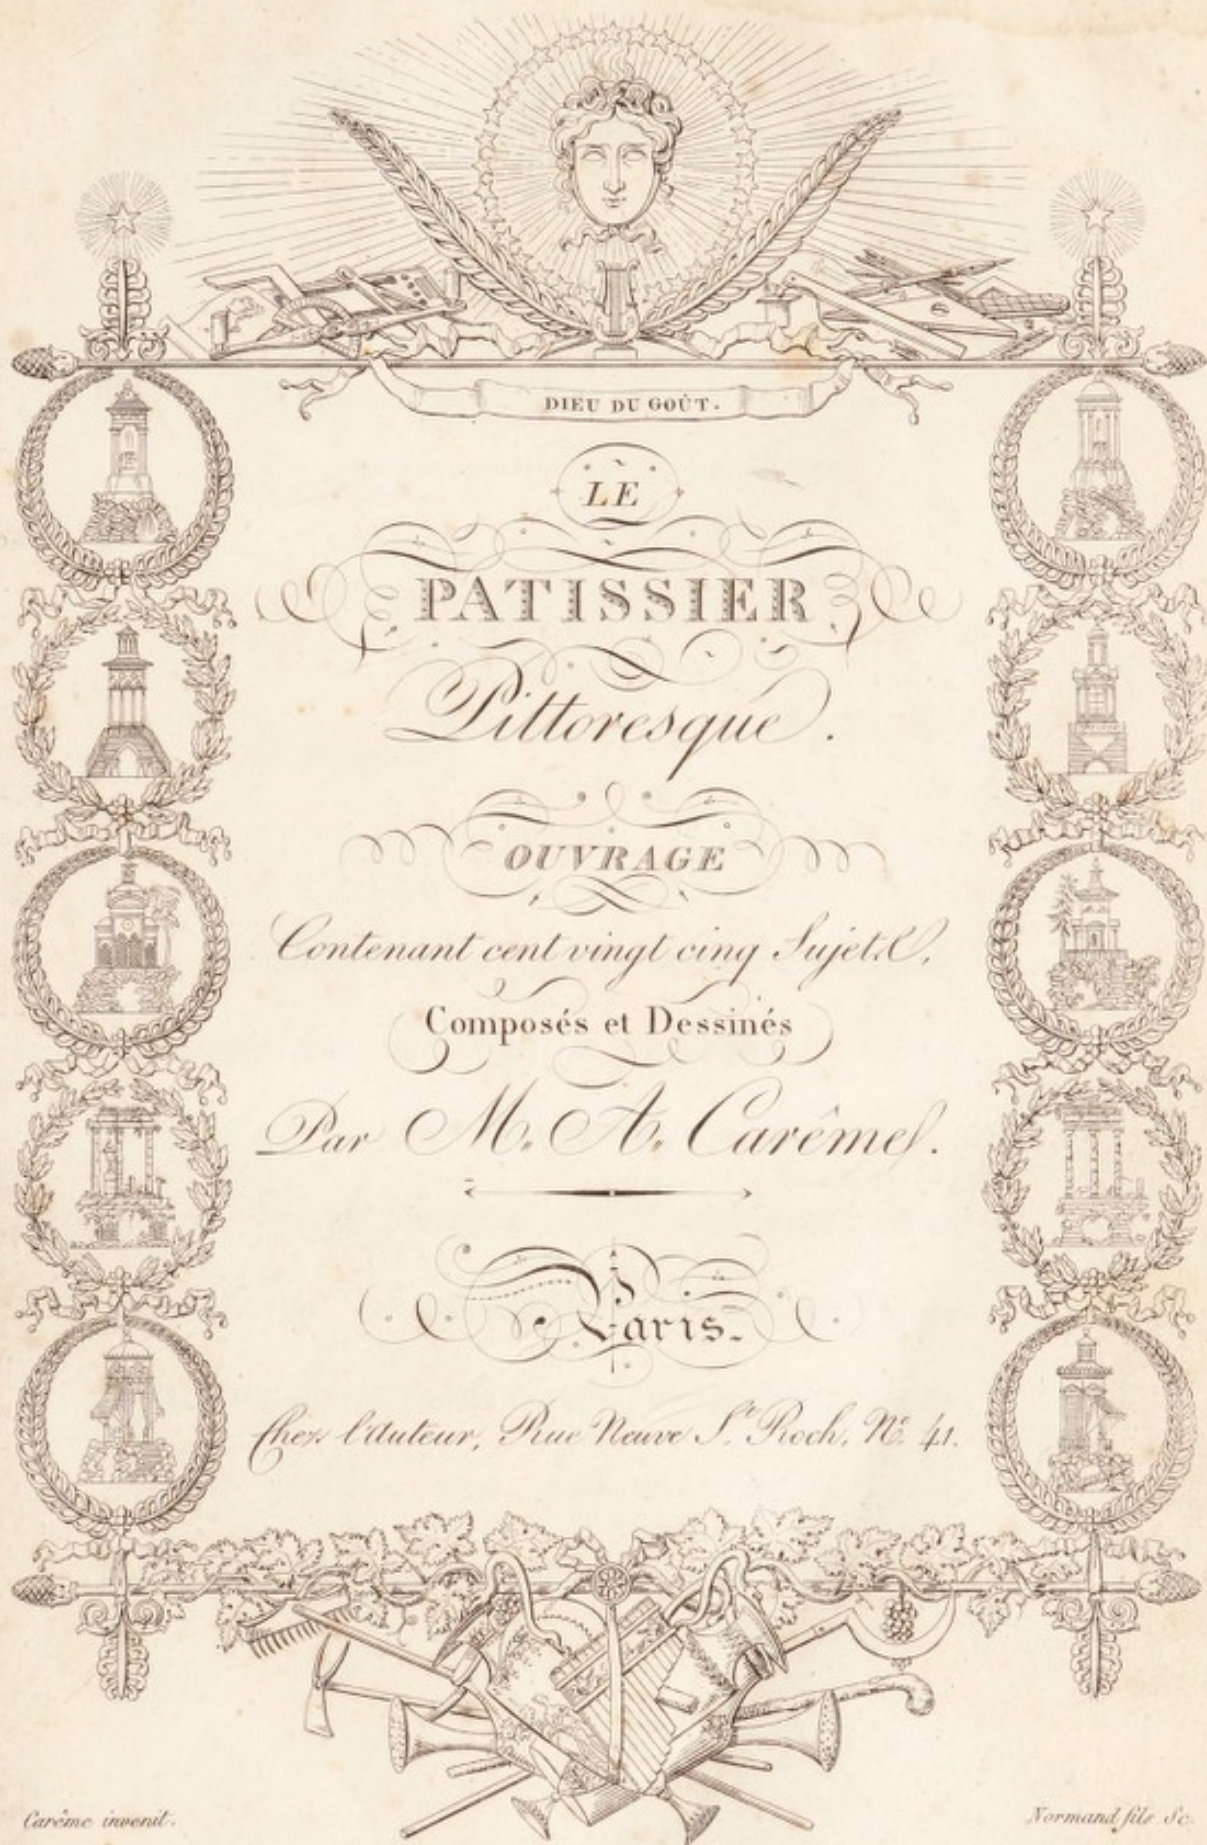 DIEU DU GOÛT.
LE
PATISSIER
Pittoresque.
OUVRAGE
Contenant cent vingt cinq Sujets,
Composés et Dessinés
Par M. A. Carême.
A
Paris.
Chez l'Auteur, Rue Neuve St. Roch, No. 41.
Carême invenit.
Normand fils Sc.